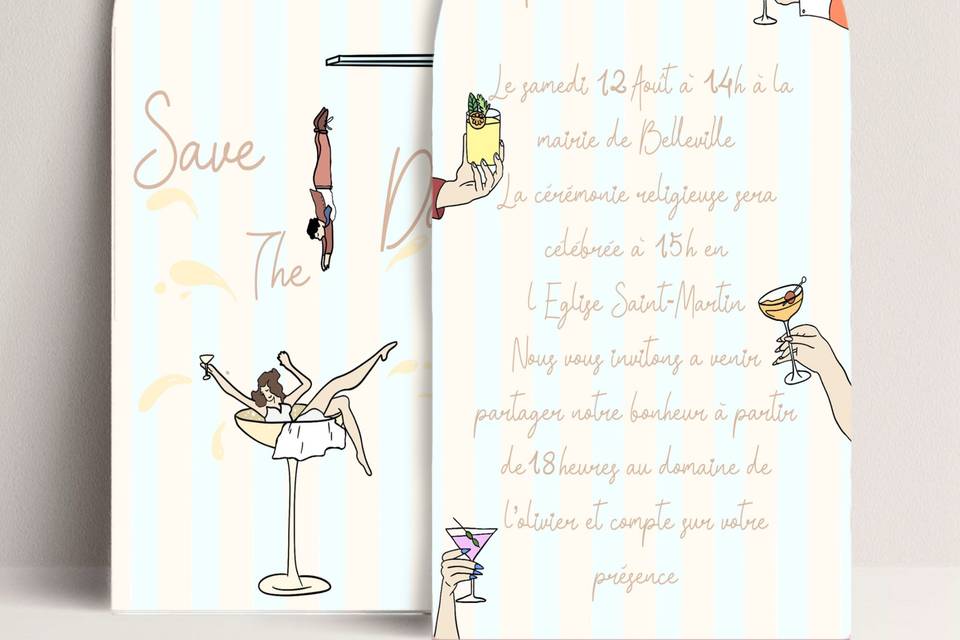 Save
The
Le samedi 12 Août à 14h à la
mairie de Belleville
La cérémonie religieuse sera
célébrée à 15h en
l Eglise Saint-Martin
Nous vous invitons a venir
partager notre bonheur à partir
de 18heures au domaine de
l'olivier et compte sur votre
présence